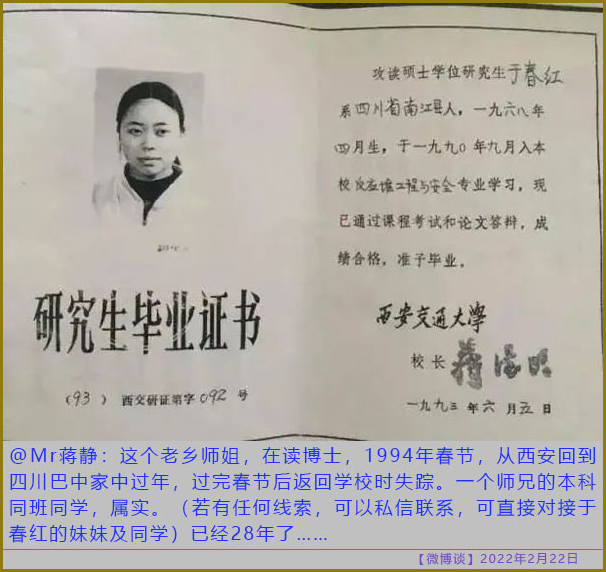 研究生毕业证书
(93) 西交研证第字092号
攻读硕士学位研究生于春红
系四川省南江县人，一九六八年
四月生，于一九九〇年九月入本
校反应堆工程与安全专业学习，现
已通过课程考试和论文答辩，成
绩合格，准予毕业。
西安交通大学
校长
一九九三年六月五日
@Mr蒋静：这个老乡师姐，在读博士，1994年春节，从西安回到
四川巴中家中过年，过完春节后返回学校时失踪。一个师兄的本科
同班同学，属实。（若有任何线索，可以私信联系，可直接对接于
春红的妹妹及同学）已经28年了……
【微博谈】2022年2月22日